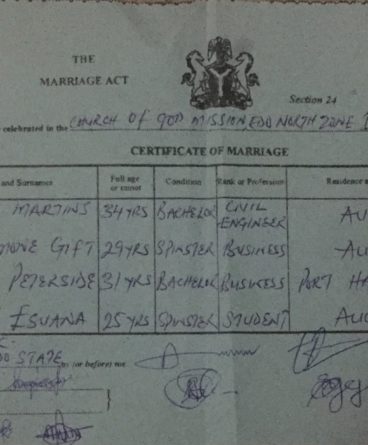 THE
MARRIAGE ACT
Section 24
celebrated in the CHURCH OF GOD MISSION, EDO NORTH ZONE
CERTIFICATE OF MARRIAGE
and Surnames Full age or minor Condition Rank or Profession Residence
MARTINS 34YRS BACHELOR CIVIL ENGINEER AU
GIFT 29YRS SPINSTER BUSINESS AU
PETERSIDE 31YRS BACHELOR BUSINESS PORT HA
ESUANA 25YRS SPINSTER STUDENT AUC
STATE (or before) me